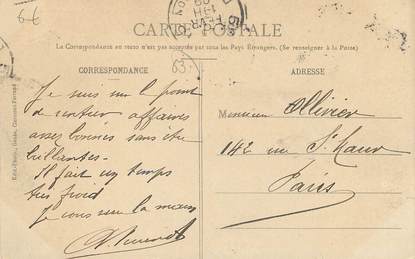 6€
CARTE POSTALE
La Correspondance au recto n'est pas acceptée par tous les Pays Étrangers. (Se renseigner à la Poste)
CORRESPONDANCE
ADRESSE
63
Je suis sur le point
de rentrer affaires
assez bonnes sans être
brillantes -
Il fait un temps
très froid
Je vous
Monsieur Ollivier
142 rue St. Maur
Paris